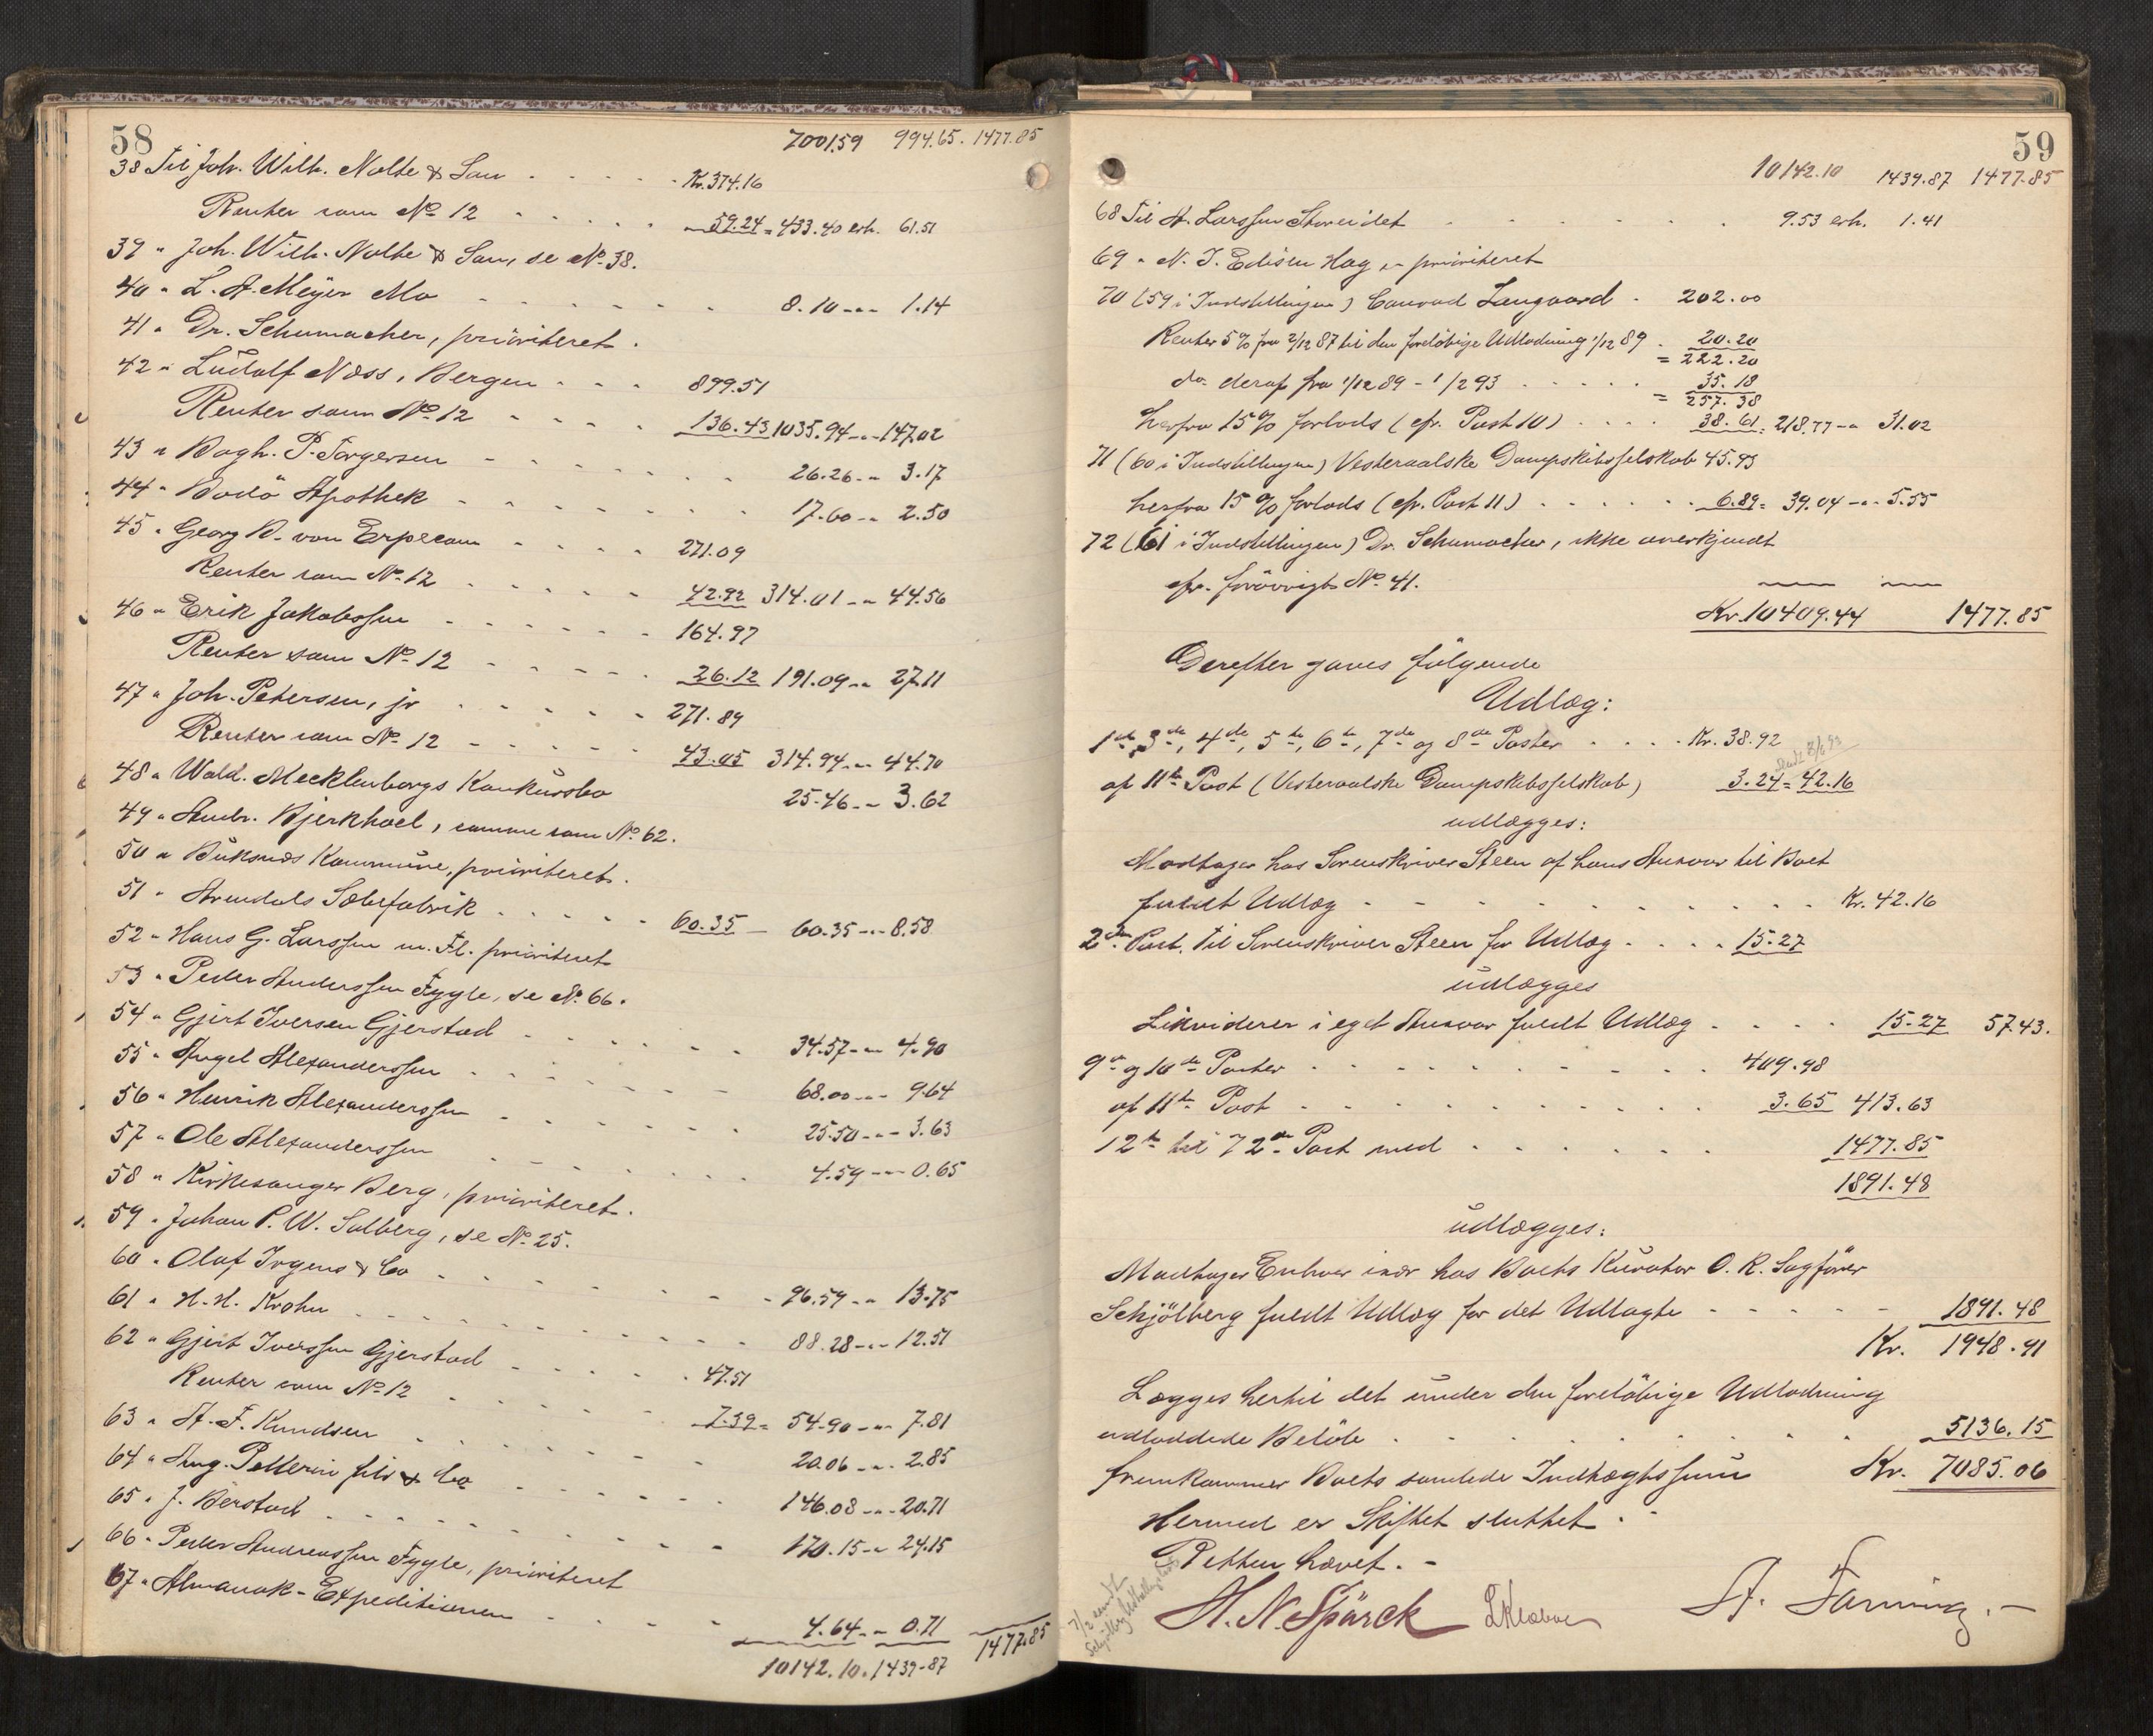 58
7001.59 994.65. 1477.85
38 Til Joh. Wilh. Nolte & Søn - - - - - Kr. 374.16
Renter som No 12 - - - - - 59.24 = 433.40 erh. 61.51
39 " Joh. Wilh. Nolte & Søn, se No 38.
40 " L. A. Meyer Mo - - - - - - 8.10 -"- 1.14
41 " Dr. Schumacher, prioriteret.
42 " Ludolf Næss, Bergen - - - 899.51
Renter som No 12 - - - - 136.43 1035.94 -"- 147.02
43 " Bogh. P. Torgersen - - - - - - 26.26 -"- 3.17
44 " Bodö Apothek - - - - - - - 17.60 -"- 2.50
45 " Georg B. von Erpecom - - - - 271.09
Renter som No 12 - - - - - 42.92 314.01 -"- 44.56
46 " Erik Jakobssen - - - - - - 164.97
Renter som No 12 - - - - - 26.12 191.09 -"- 27.11
47 " Joh. Petersen, jr - - - - - 271.89
Renter som No 12 - - - - - 43.05 314.94 -"- 44.70
48 " Wald. Mecklenborgs Konkursbo 25.46 -"- 3.62
49 " Andr. Bjerkhoel, samme som No 62.
50 " Buksnæs Kommune, prioriteret.
51 " Arendals Sæbefabrik - - - - - 60.35 — 60.35 -"- 8.58
52 " Hans G. Larssen m. Fl. prioriteret
53 " Peder Anderssen Fygle, se No 66.
54 " Gjert Iversen Gjerstad - - - - - - 34.57 -"- 4.90
55 " Angel Alexanderssen - - - - - - 68.00 -"- 9.64
56 " Henrik Alexanderssen - - - - - - 25.50 -"- 3.63
57 " Ole Alexanderssen - - - - - - - 4.59 -"- 0.65
58 " Kirkesanger Berg, prioriteret.
59 " Johan P. W. Solberg, se No 25.
60 " Olaf Irgens & Co - - - - - - - 96.59 -"- 13.75
61 " H. H. Krohn - - - - - - - - 88.28 -"- 12.51
62 " Gjert Iverssen Gjerstad - - - - 47.51
Renter som No 12 - - - - - 7.39 = 54.90 -"- 7.81
63 " A. F. Knudsen - - - - - - - 20.06 -"- 2.85
64 " Aug. Pellerin fils & Co - - - - - 146.08 -"- 20.71
65 " J. Berstad - - - - - - - - 170.15 -"- 24.15
66 " Peder Andreassen Fygle, prioriteret
67 " Almanak-Expeditionen - - - - 4.64 -"- 0.71
10142.10. 1439.87 1477.85
59
10142.10 1439.87 1477.85
68 Til A. Larssen Storeidet - - - - - - 9.53 erh. 1.41
69 " N. J. Edisen Hag " prioriteret
70 (59 i Indstillingen) Conrad Langaard - 202.00
Renter 5 % fra 2/12 87 til den foreløbige Udlodning 1/12 89 - 20.20
= 222.20
do. deraf fra 1/12 89 - 1/2 93 - - - - - 35.18
= 257.38
herfra 15 % forlods (cfr. Post 10) - - - - 38.61 = 218.77 -"- 31.02
71 (60 i Indstillingen) Vesteraalske Dampskibsselskab 45.93
herfra 15 % forlods (cfr. Post 11) - - - - - - 6.89 = 39.04 -"- 5.55
72 (61 i Indstillingen) Dr. Schumacher, ikke anerkjendt
cfr. forøvrigt No 41.
Kr. 10409.44 1477.85
Derefter gaves følgende
Udlæg:
1ste, 3die, 4de, 5te, 6te, 7de og 8de Poster - - - - Kr. 38.92
af 11te Post (Vesteraalske Dampskibsselskab) 3.24 = 42.16
udlægges:
Modtager hos Sorenskriver Steen af hans Ansvar til Boet
fuldt Udlæg - - - - - - - - - - - Kr. 42.16
2den Post. Til Sorenskriver Steen for Udlæg - - - - 15.27
udlægges
Likviderer i eget Ansvar fuldt Udlæg - - - - 15.27 57.43.
9de og 10de Poster - - - - - - - - - 409.98
af 11te Post - - - - - - - - - - 3.65 413.63
12te til 72de Post med - - - - - - 1477.85
1891.48
udlægges:
Modtager Enhver især hos Boets Kurator O. R. Sagfører
Schjölberg fuldt Udlæg for det Udlagte - - - - - 1891.48
Kr. 1948.91
Lægges hertil det under den foreløbige Udlodning
udloddede Beløb - - - - - - - - 5136.15
fremkommer Boets samlede Indtægtssum Kr. 7085.06
Hermed er Skiftet sluttet. -
Retten hævet. -
7/2 sendt
H. N. Spärck
A. Farming. -